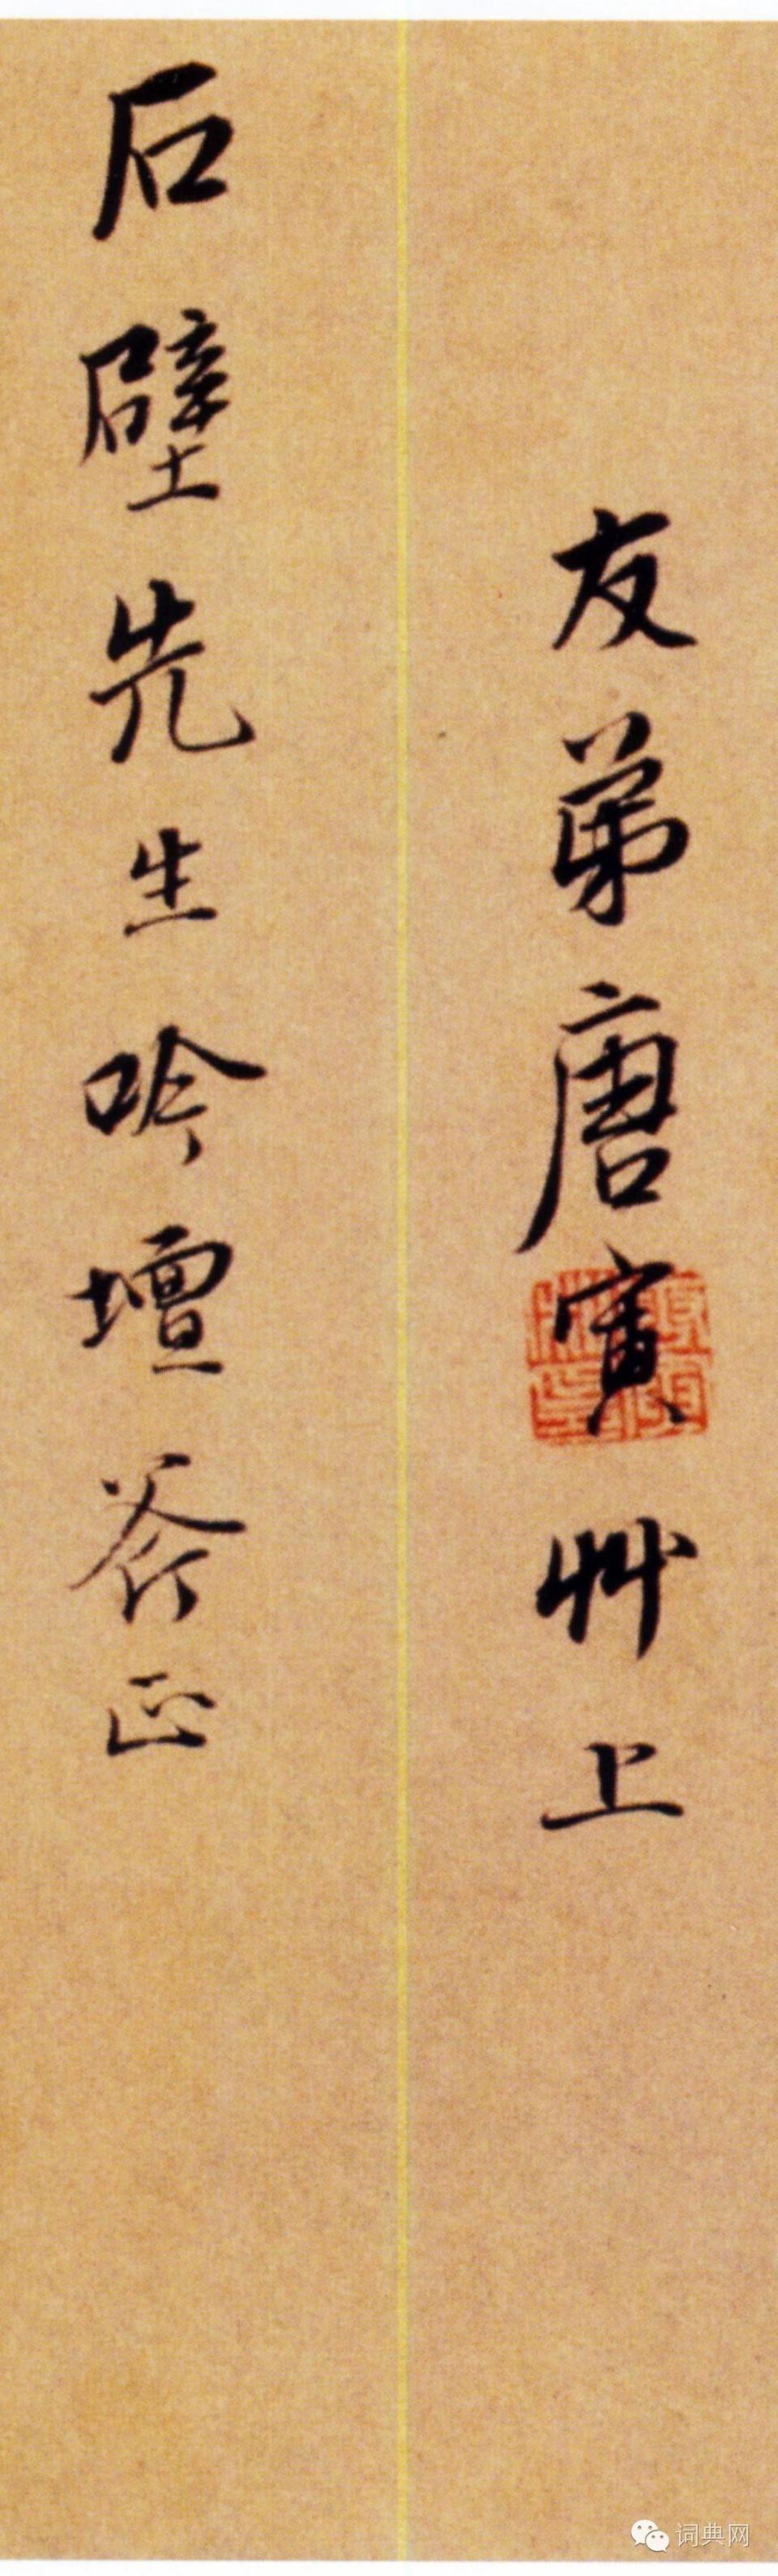 友弟唐寅艸上
石壁先生吟壇斧正
词典网